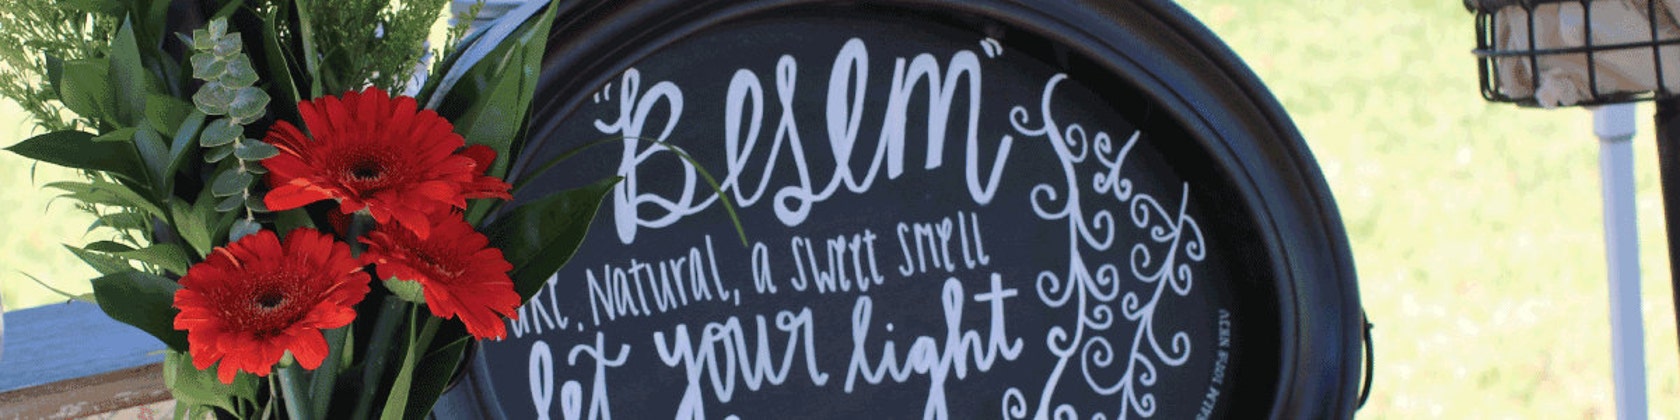 "Besem"
Natural, a sweet smell
let your light